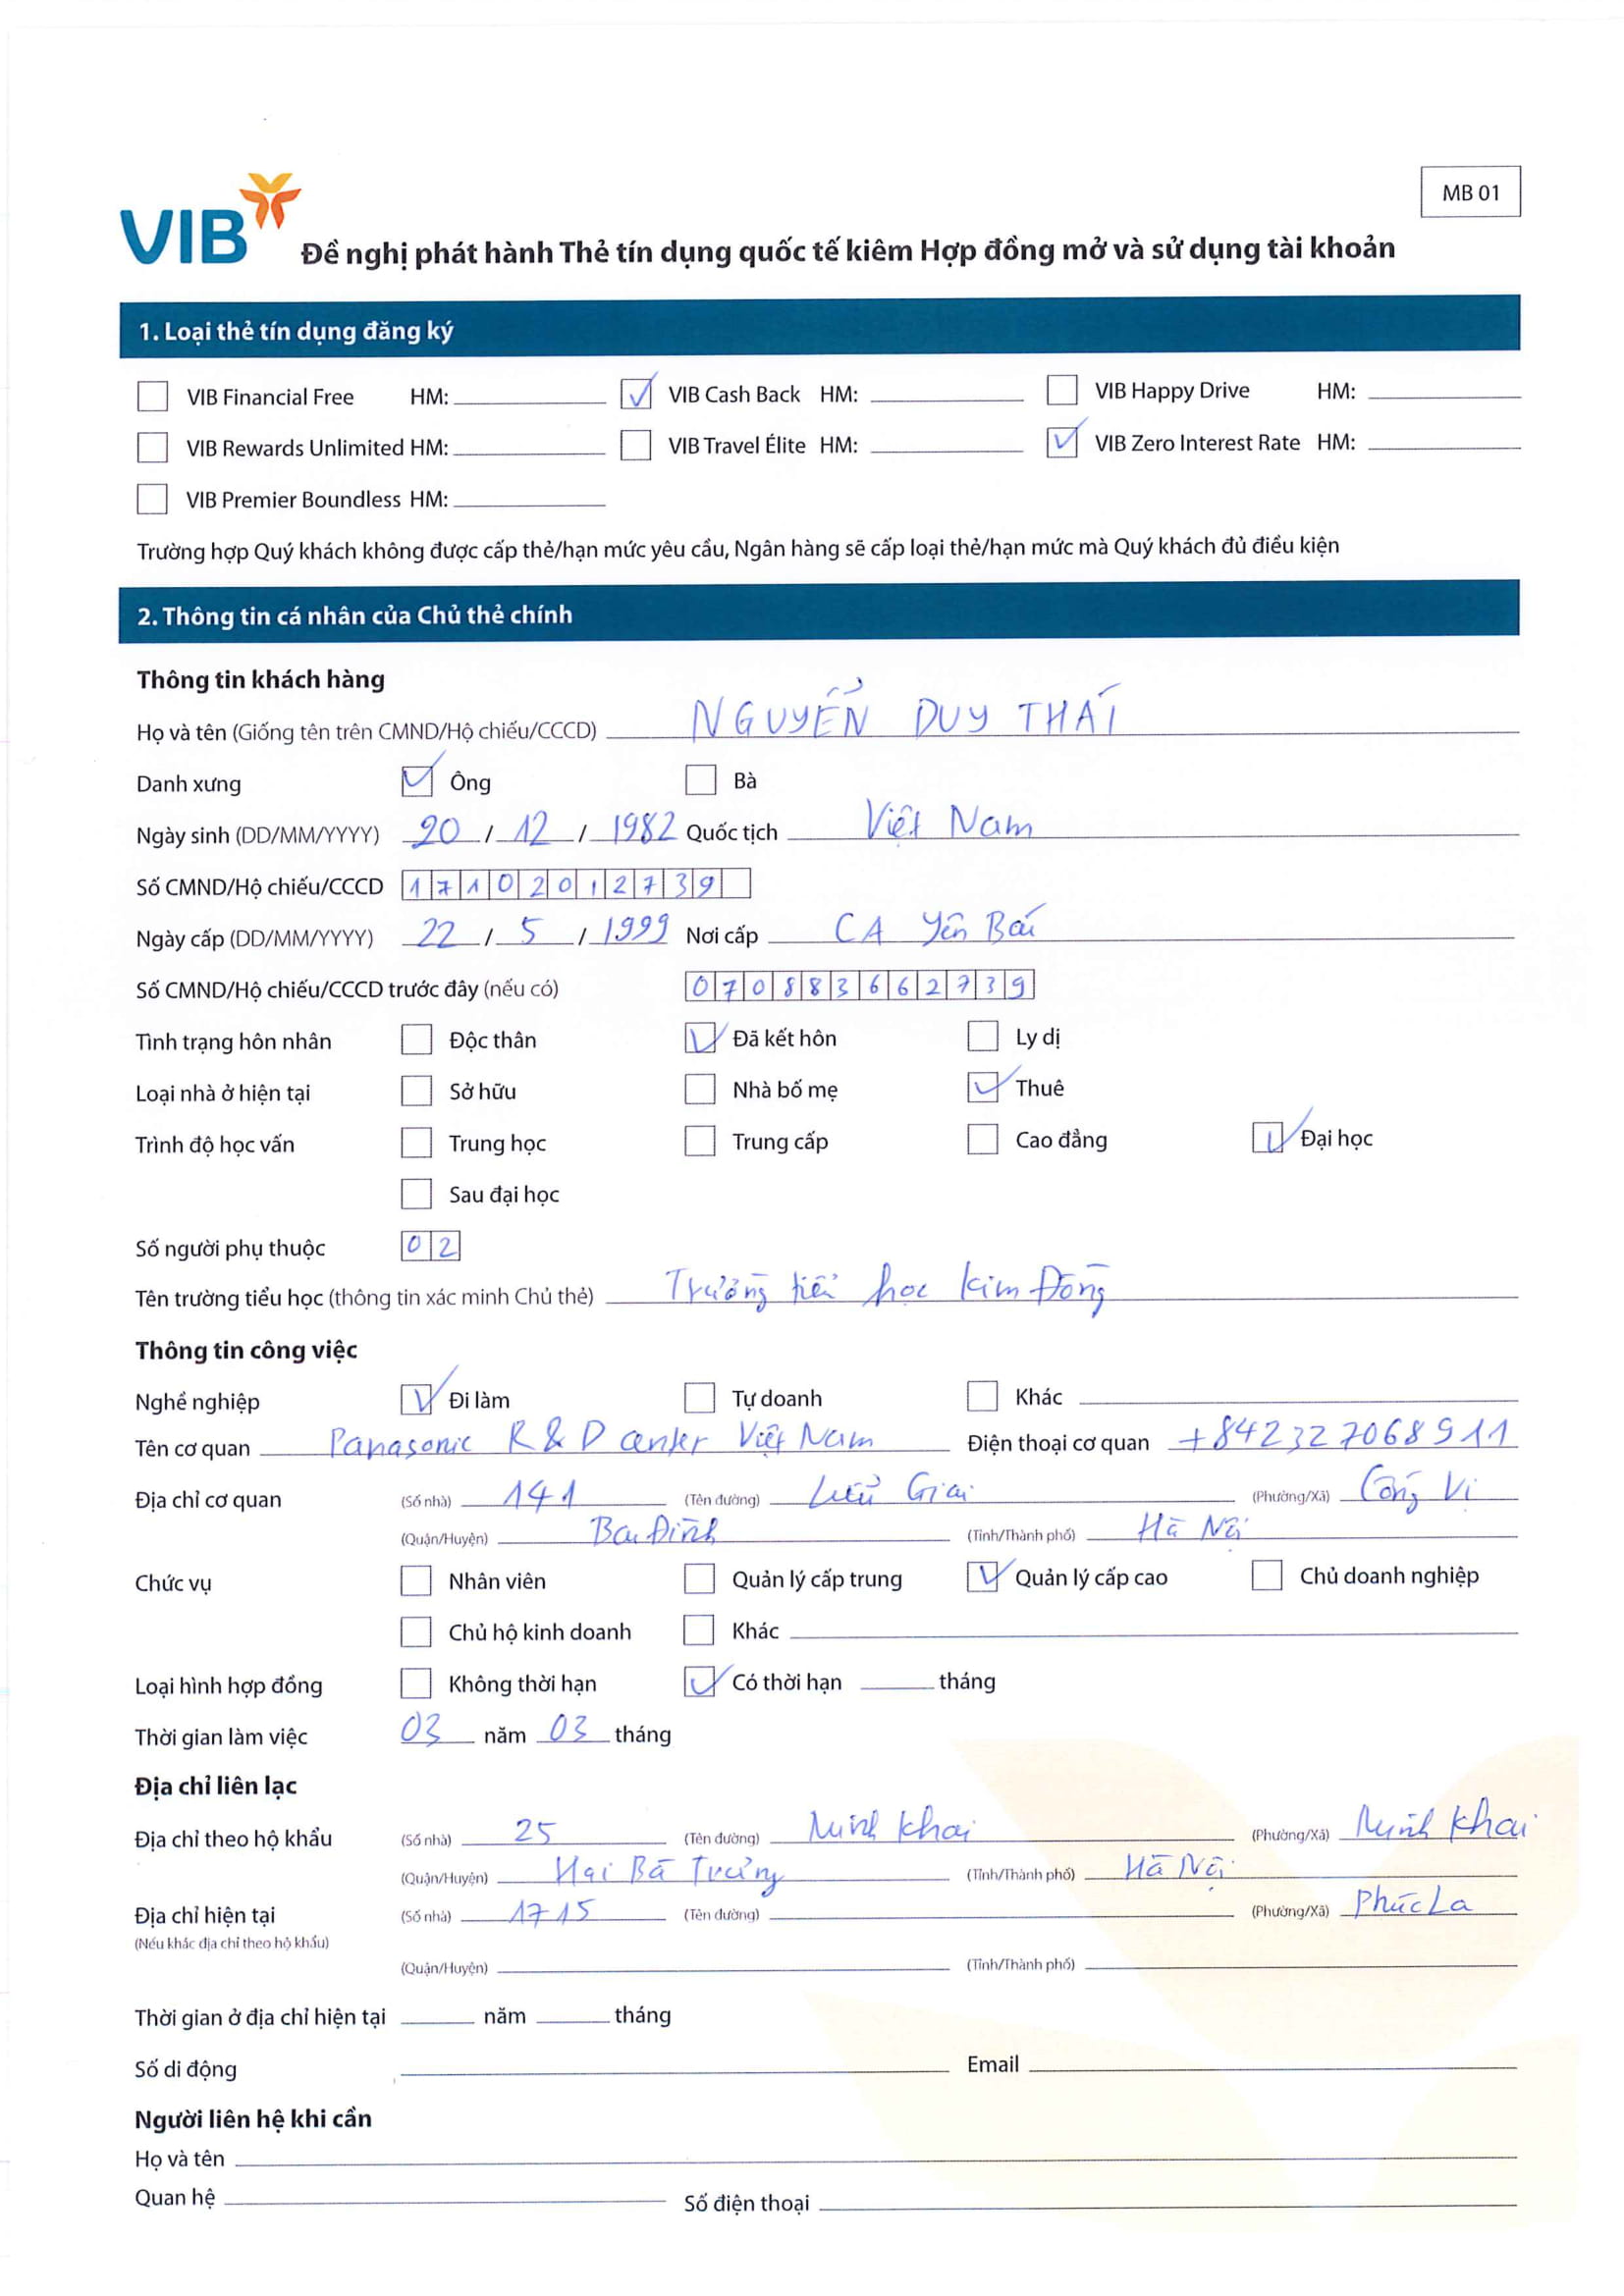 MB 01
VIB Đề nghị phát hành Thẻ tín dụng quốc tế kiêm Hợp đồng mở và sử dụng tài khoản
1. Loại thẻ tín dụng đăng ký
VIB Financial Free HM: VIB Cash Back HM: VIB Happy Drive HM:
VIB Rewards Unlimited HM: VIB Travel Élite HM: VIB Zero Interest Rate HM:
VIB Premier Boundless HM:
Trường hợp Quý khách không được cấp thẻ/hạn mức yêu cầu, Ngân hàng sẽ cấp loại thẻ/hạn mức mà Quý khách đủ điều kiện
2. Thông tin cá nhân của Chủ thẻ chính
Thông tin khách hàng
Họ và tên (Giống tên trên CMND/Hộ chiếu/CCCD) NGUYỄN DUY THÁI
Danh xưng Ông Bà
Ngày sinh (DD/MM/YYYY) 20 / 12 / 1982 Quốc tịch Việt Nam
Số CMND/Hộ chiếu/CCCD 17102012739
Ngày cấp (DD/MM/YYYY) 22 / 5 / 1999 Nơi cấp CA Yên Bái
Số CMND/Hộ chiếu/CCCD trước đây (nếu có) 070883662739
Tình trạng hôn nhân Độc thân Đã kết hôn Ly dị
Loại nhà ở hiện tại Sở hữu Nhà bố mẹ Thuê
Trình độ học vấn Trung học Trung cấp Cao đẳng Đại học
Sau đại học
Số người phụ thuộc 02
Tên trường tiểu học (thông tin xác minh Chủ thẻ) Trường tiểu học Kim Đồng
Thông tin công việc
Nghề nghiệp Đi làm Tự doanh Khác
Tên cơ quan Panasonic R & D center Việt Nam Điện thoại cơ quan +842327068911
Địa chỉ cơ quan (Số nhà) 141 (Tên đường) Liễu Giai (Phường/Xã) Cống Vị
(Quận/Huyện) Ba Đình (Tỉnh/Thành phố) Hà Nội
Chức vụ Nhân viên Quản lý cấp trung Quản lý cấp cao Chủ doanh nghiệp
Chủ hộ kinh doanh Khác
Loại hình hợp đồng Không thời hạn Có thời hạn tháng
Thời gian làm việc 03 năm 03 tháng
Địa chỉ liên lạc
Địa chỉ theo hộ khẩu (Số nhà) 25 (Tên đường) Minh Khai (Phường/Xã) Minh Khai
(Quận/Huyện) Hai Bà Trưng (Tỉnh/Thành phố) Hà Nội
Địa chỉ hiện tại (Số nhà) 1715 (Tên đường) (Phường/Xã) Phúc La
(Nếu khác địa chỉ theo hộ khẩu)
(Quận/Huyện) (Tỉnh/Thành phố)
Thời gian ở địa chỉ hiện tại năm tháng
Số di động Email
Người liên hệ khi cần
Họ và tên
Quan hệ Số điện thoại